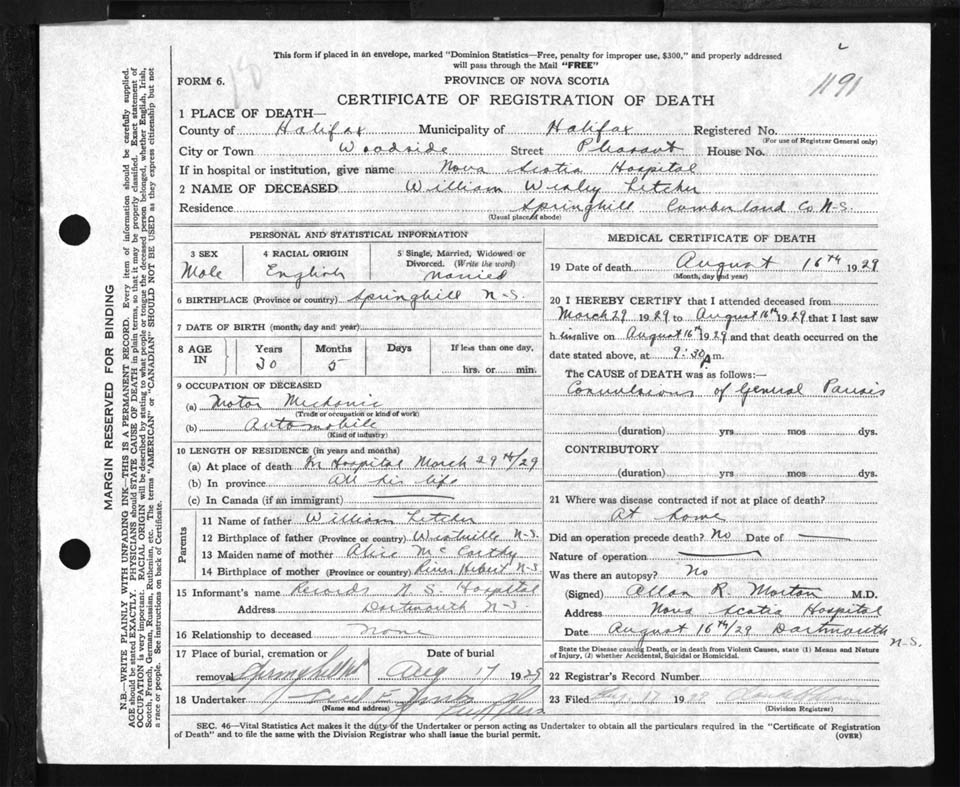 This form if placed in an envelope, marked "Dominion Statistics—Free, penalty for improper use, $300," and properly addressed
will pass through the Mail "FREE"
18
1191
FORM 6.
PROVINCE OF NOVA SCOTIA
CERTIFICATE OF REGISTRATION OF DEATH
MARGIN RESERVED FOR BINDING
N.B.—WRITE PLAINLY WITH UNFADING INK—THIS IS A PERMANENT RECORD. Every item of information should be carefully supplied.
AGE should be stated EXACTLY. PHYSICIANS should STATE CAUSE OF DEATH in plain terms, so that it may be properly classified. Exact statement of
OCCUPATION is very important. RACIAL ORIGIN will be described by stating to what people or tongue the deceased person belonged, whether English, Irish,
Scotch, French, German, Russian, Ruthenian, etc. The terms "AMERICAN" or "CANADIAN" SHOULD NOT BE USED as they express citizenship but not
a race or people. See instructions on back of Certificate.
1 PLACE OF DEATH—
County of Halifax Municipality of Halifax Registered No.
(For use of Registrar General only)
City or Town Woodside Street Pleasant House No.
If in hospital or institution, give name Nova Scotia Hospital
2 NAME OF DECEASED William Wesley Letcher
Residence Springhill Cumberland Co N-S.
(Usual place of abode)
PERSONAL AND STATISTICAL INFORMATION
3 SEX
Male
4 RACIAL ORIGIN
English
5 Single, Married, Widowed or
Divorced. (Write the word)
Married
6 BIRTHPLACE (Province or country) Springhill N-S.
7 DATE OF BIRTH (month, day and year)
8 AGE IN
Years Months Days If less than one day,
30 5
hrs. or min.
9 OCCUPATION OF DECEASED
(a) Motor Mechanic
(Trade or occupation or kind of work)
(b) Automobile
(Kind of industry)
10 LENGTH OF RESIDENCE (in years and months)
(a) At place of death In Hospital March 29th/29
(b) In province All his life
(c) In Canada (if an immigrant)
Parents
11 Name of father William Letcher
12 Birthplace of father (Province or country) Westville N-S.
13 Maiden name of mother Alice McCarthy
14 Birthplace of mother (Province or country) River Hebert N-S
15 Informant's name Records N.S. Hospital
Address Dartmouth N-S.
16 Relationship to deceased None
17 Place of burial, cremation or Date of burial
removal Springhill Aug 17 1929
18 Undertaker Cecil E
(Name and address)
MEDICAL CERTIFICATE OF DEATH
19 Date of death August 16th 1929
(Month, day and year)
20 I HEREBY CERTIFY that I attended deceased from
March 29 1929 to August 16th 1929 that I last saw
h im alive on August 16th 1929 and that death occurred on the
date stated above, at 9.30 p.m.
The CAUSE of DEATH was as follows:—
Convulsions of General Paresis
(duration) yrs mos dys.
CONTRIBUTORY
(duration) yrs mos dys.
21 Where was disease contracted if not at place of death?
At home
Did an operation precede death? No Date of
Nature of operation
Was there an autopsy? No
(Signed) Allan R. Morton M.D.
Address Nova Scotia Hospital
Date August 16th/29 Dartmouth N-S.
State the Disease causing Death, or in death from Violent Causes, state (1) Means and Nature
of Injury, (2) whether Accidental, Suicidal or Homicidal.
22 Registrar's Record Number
23 Filed Aug 17 1929
(Division Registrar)
SEC. 46—Vital Statistics Act makes it the duty of the Undertaker or person acting as Undertaker to obtain all the particulars required in the "Certificate of Registration
of Death" and to file the same with the Division Registrar who shall issue the burial permit.
(OVER)